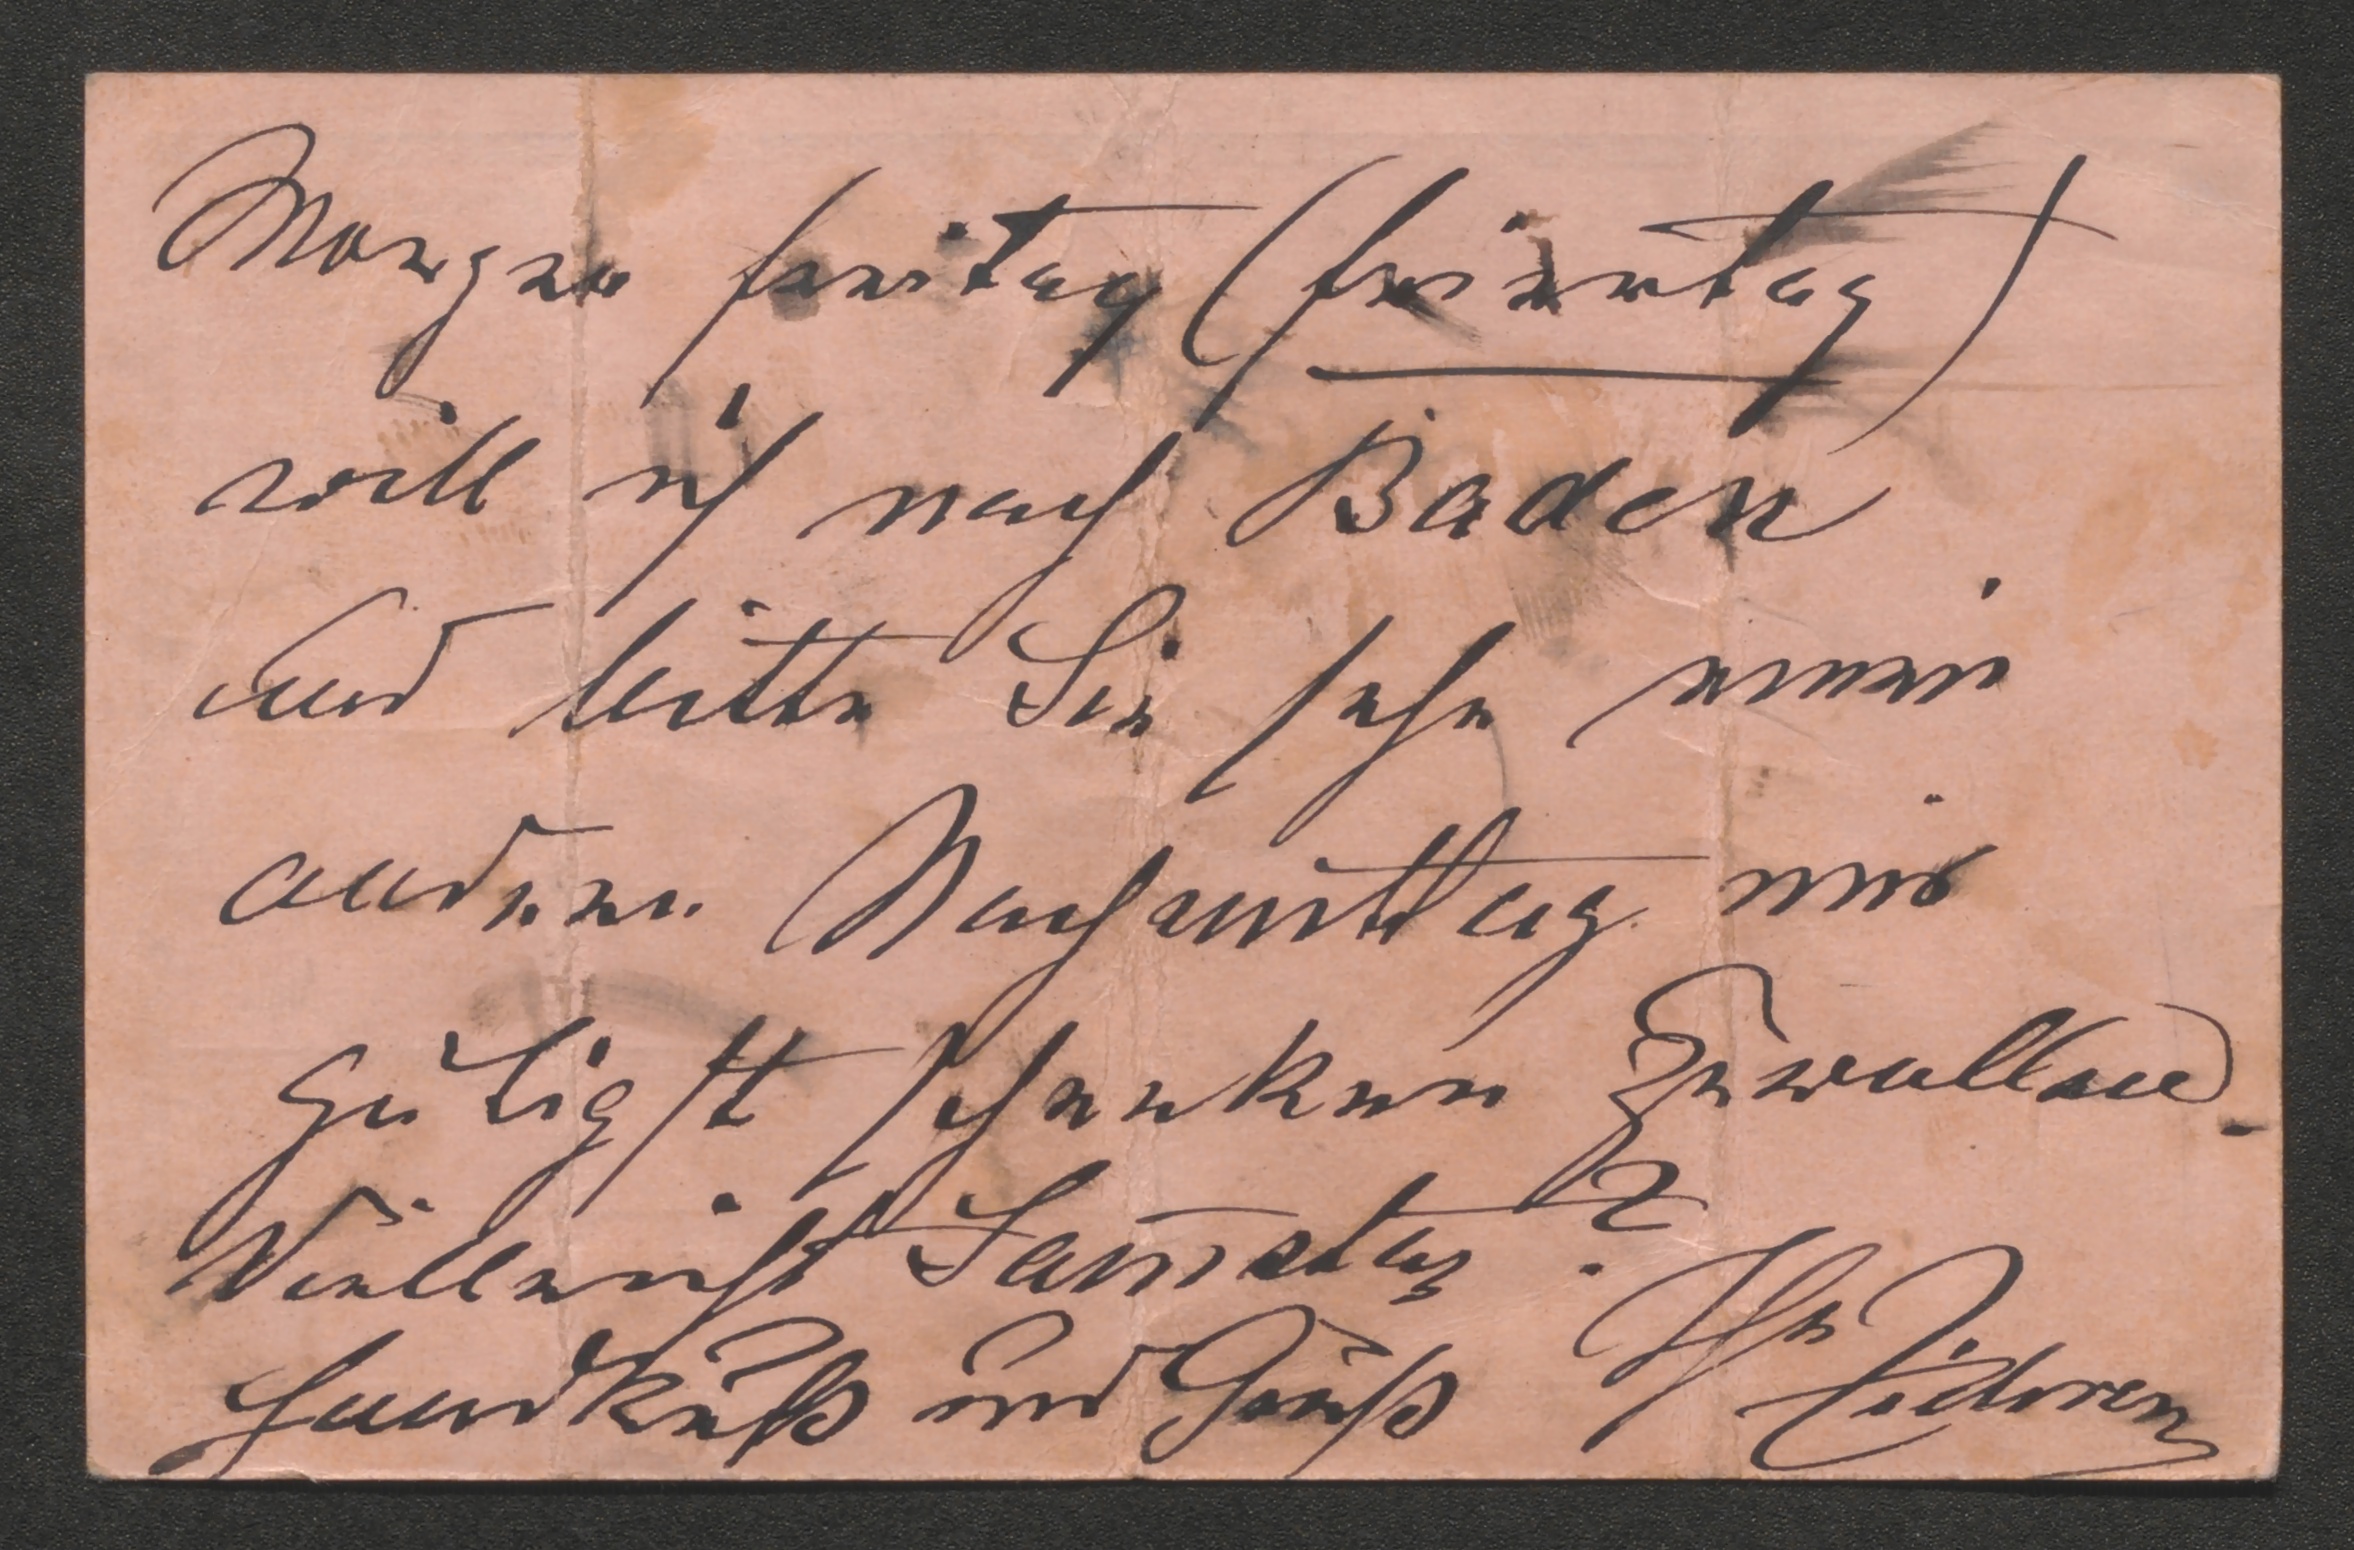 Morgen freitag (feiertag)
will ich nach Baden
und bitte Sie sehr einen
anderen Nachmittag mir
gütigst schenken zu wollen.
Vielleicht Samstag?
Handkuß und Gruß Ihr